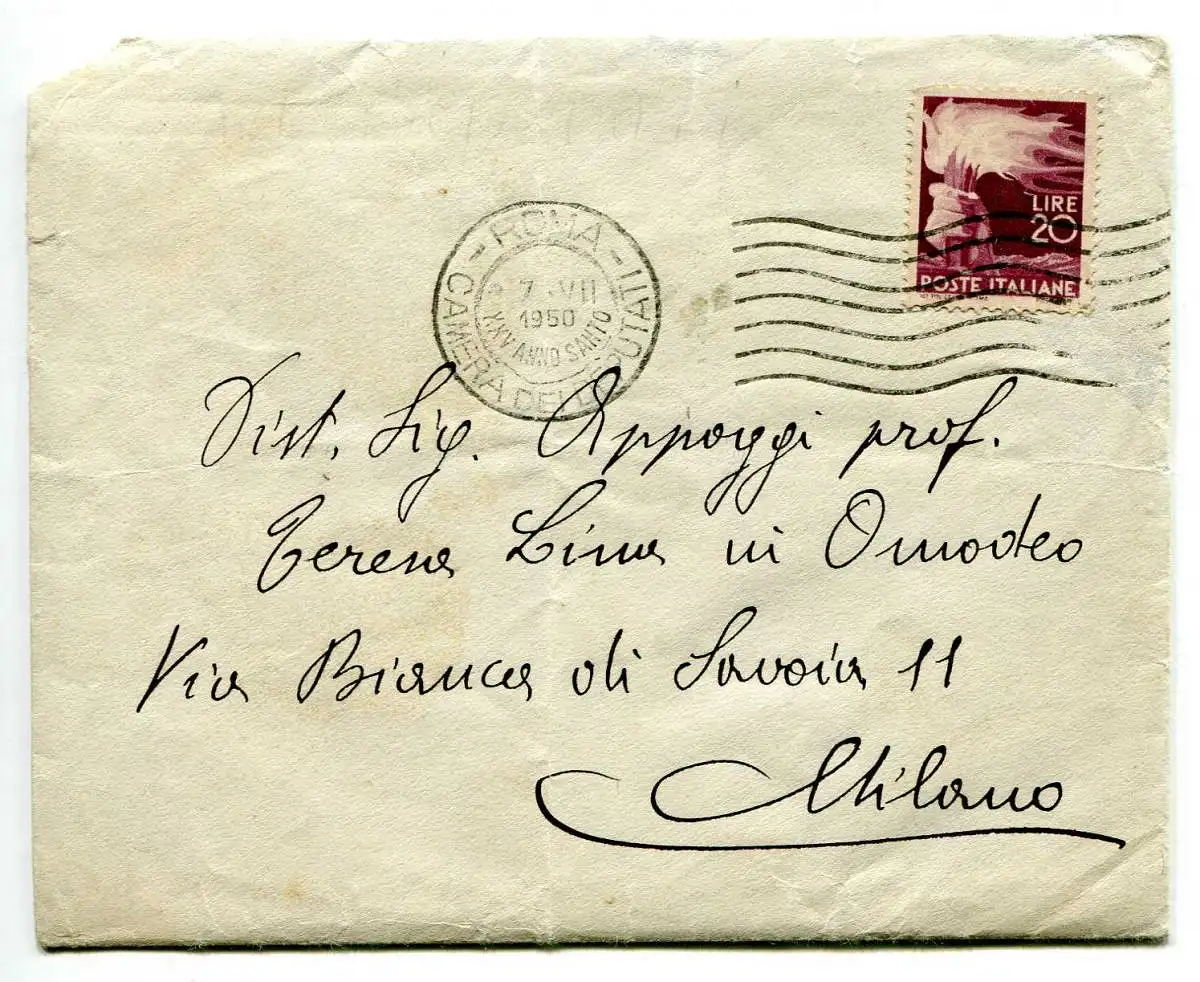 LIRE
20
POSTE ITALIANE
ROMA
CAMERA DEI DEPUTATI
7 . VII
1950
XXV ANNO SANTO
Dist. Sig. Appoggi prof.
Teresa Lina in Omodeo
Via Bianca di Savoia 11
Milano